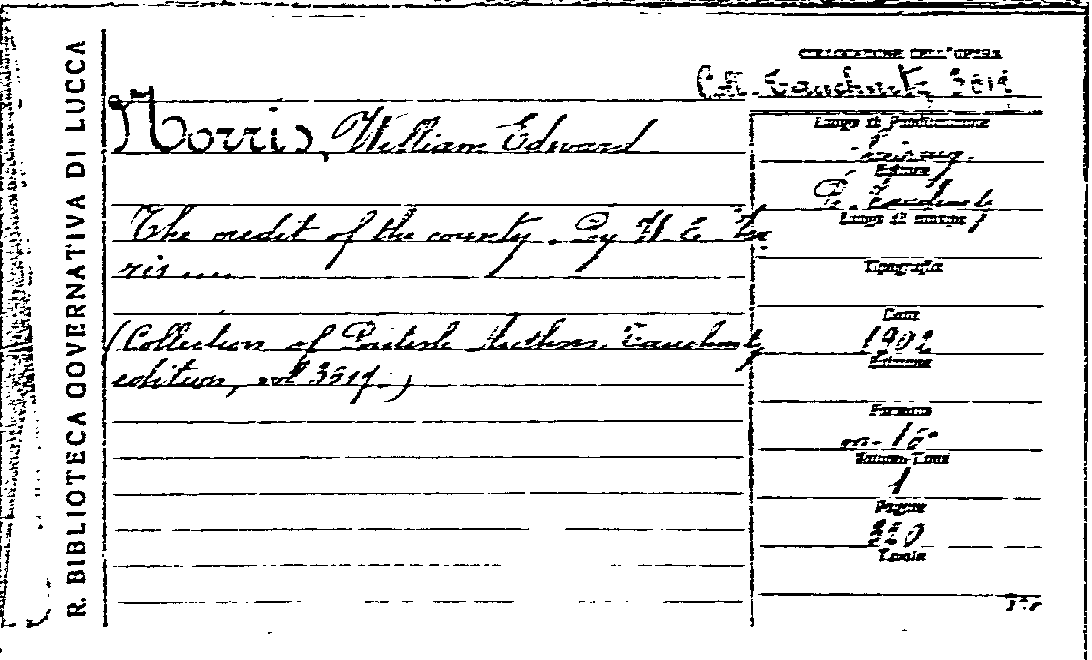 R. BIBLIOTECA GOVERNATIVA DI LUCCA
COLLOCAZIONE DELL'OPERA
Coll. Tauchnitz
Morris, William Edward
Luogo di Pubblicazione
Leipzig.
Editore
B. Tauchnitz
Luogo di stampa
The credit of the county. By W. E. Mor
ris ....
Tipografia
Data
1902
Edizione
(Collection of British Authors. Tauchnitz
edition, vol.
Formato
in-16°
Volumi Tomi
1
Pagine
Tavole